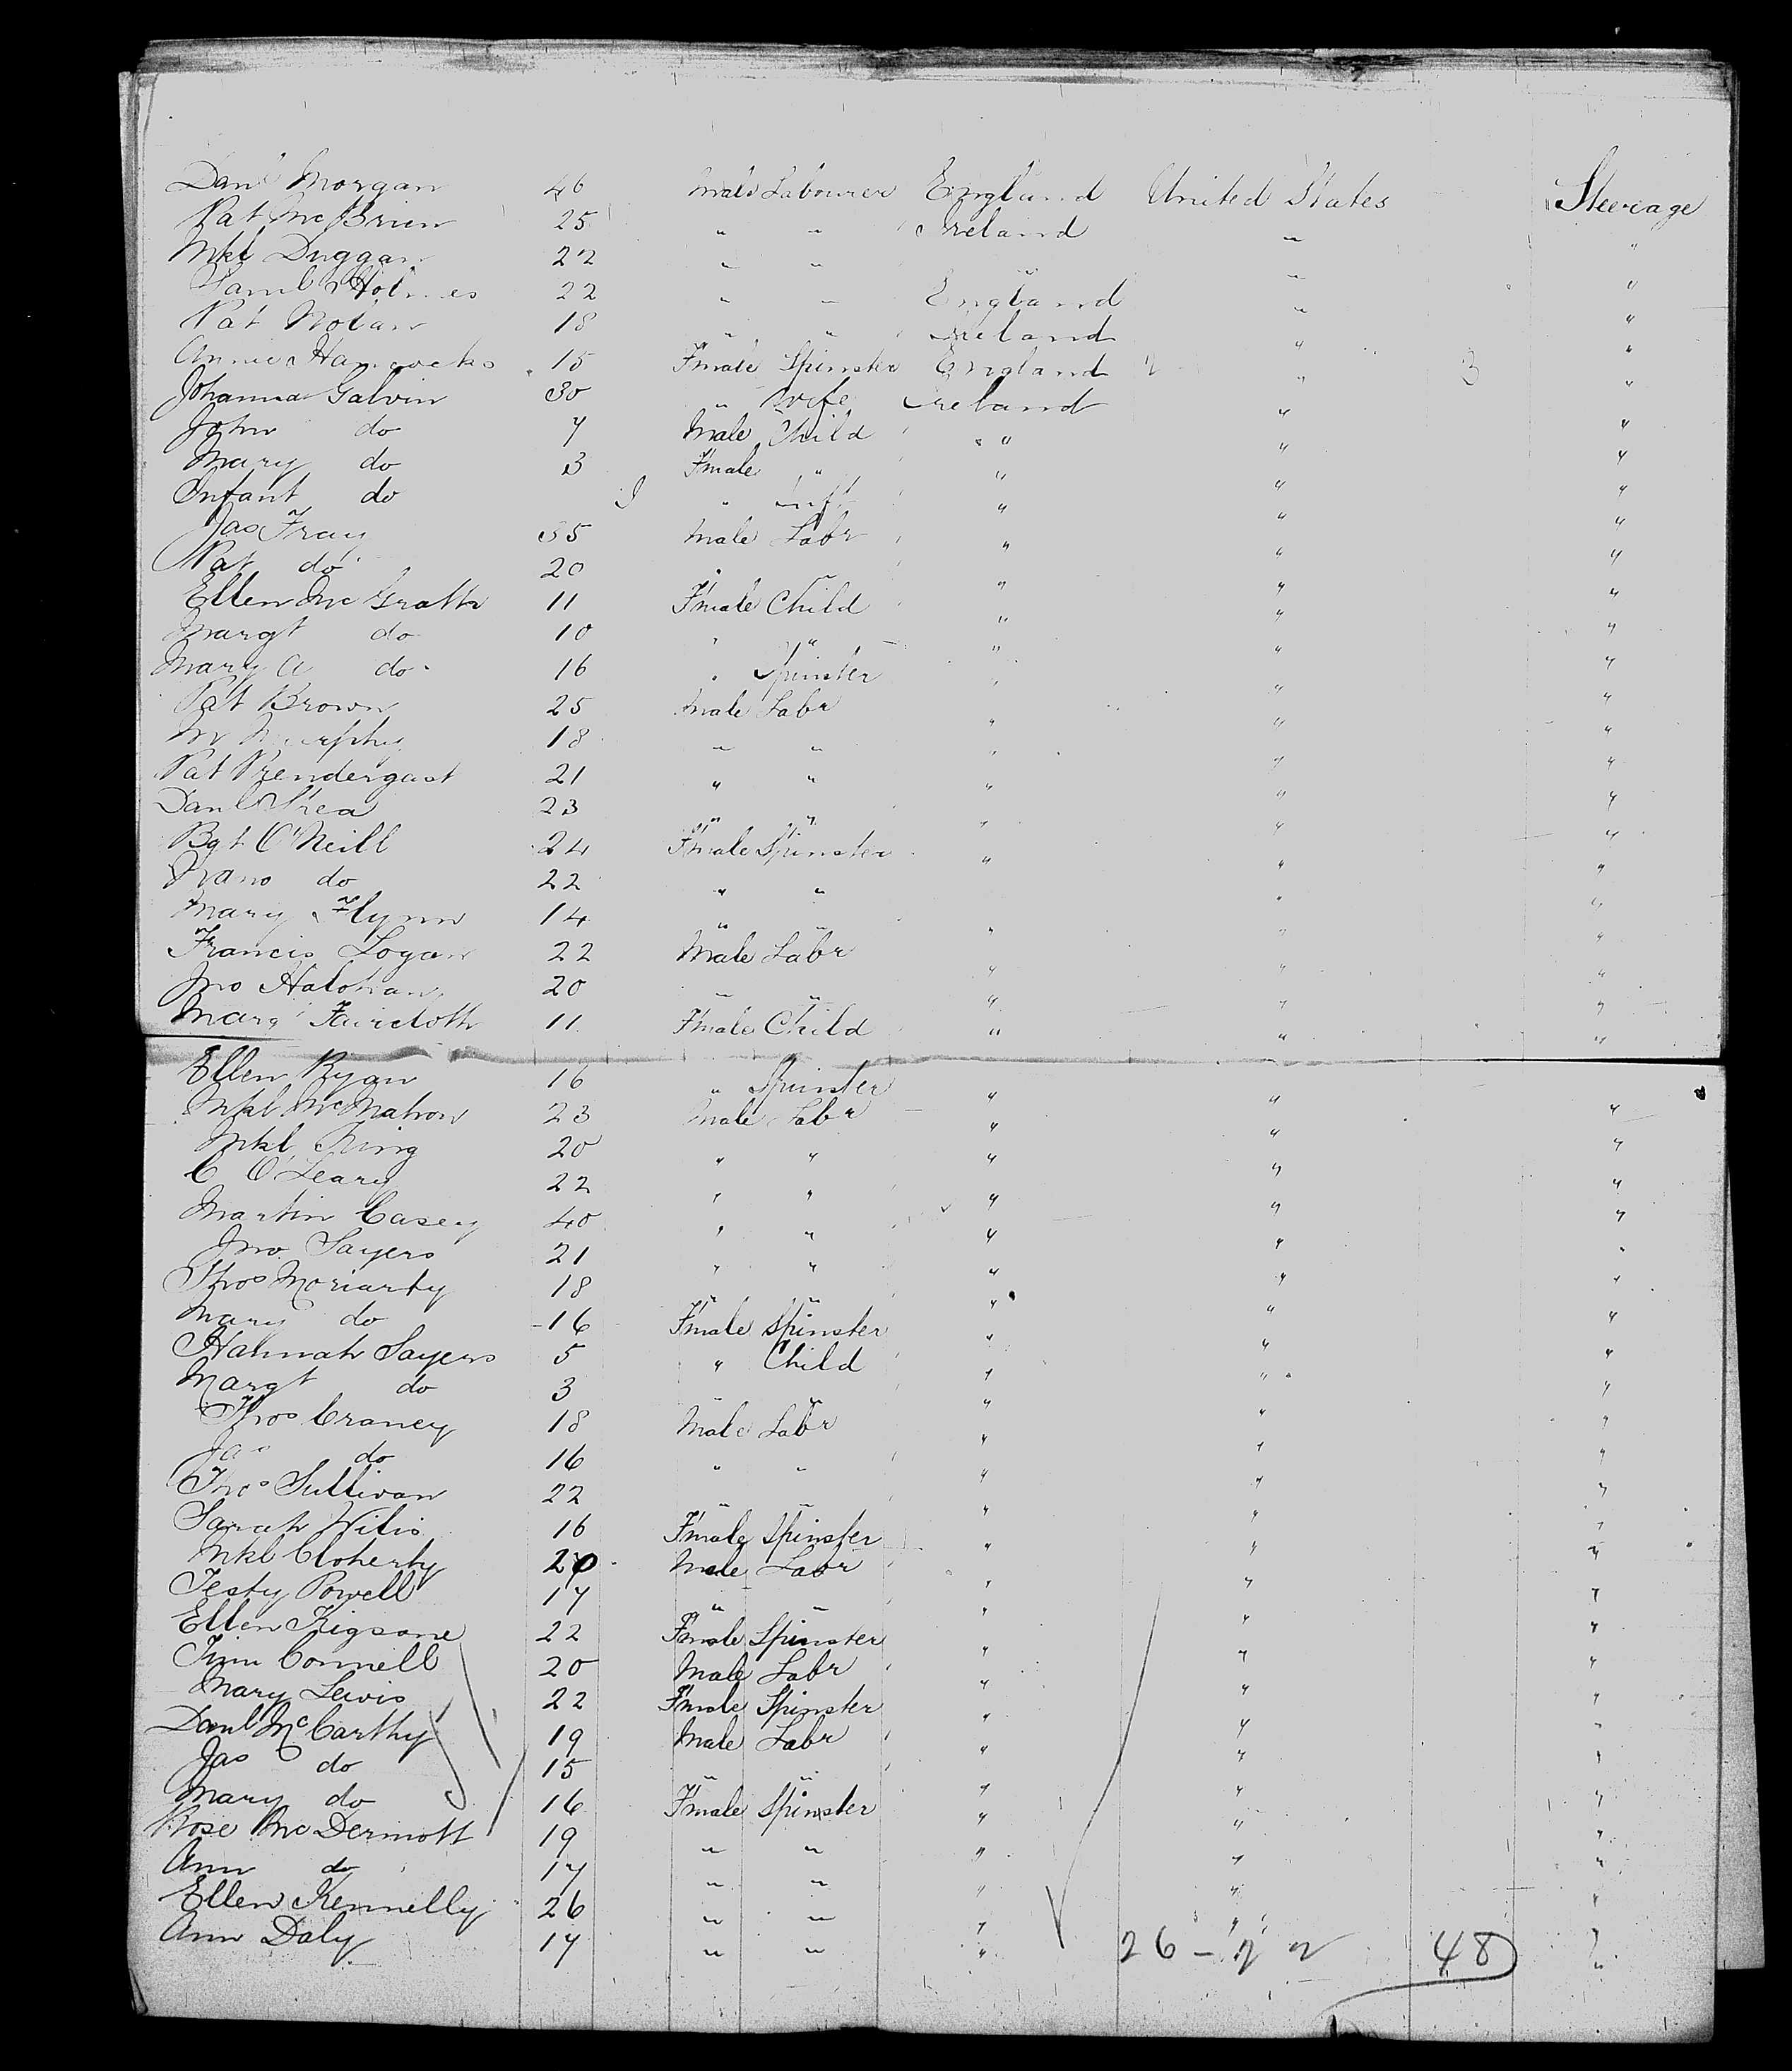 Danl Morgan 46 Male Labourer England United States Steerage
Pat McBrien 25 " " Ireland " "
Mkl Duggan 22 " " " " "
Saml Holmes 22 " " England " "
Pat Nolan 18 " " Ireland " "
Annie 15 Fmale Spinster England " 3 "
Johanna Galvin 30 " Wife Ireland " "
John do 7 Male Child " " "
Mary do 3 Fmale " " " "
Infant do " inft " " "
Jas Fray 35 Male Labr " " "
Pat do 20 " " " " "
Ellen McGrath 11 Fmale Child " " "
Margt do 10 " " " " "
Mary A do 16 " Spinster " " "
Pat Brown 25 Male Labr " " "
M Murphy 18 " " " " "
Pat Prendergast 21 " " " " "
Danl Shea 23 " " " " "
Bgt O'Neill 24 Fmale Spinster " " "
do 22 " " " " "
Mary Flynn 14 " " " " "
Francis Logan 22 Male Labr " " "
Jno Halohan 20 " " " " "
Marg Faircloth 11 Fmale Child " " "
Ellen Ryan 16 " Spinster " " "
Mkl McMahon 23 Male Labr " " "
Mkl King 20 " " " " "
C O'Leary 22 " " " " "
Martin Casey 40 " " " " "
Jno Sayers 21 " " " " "
Thos Moriarty 18 " " " " "
Mary do 16 Fmale Spinster " " "
Hannah Sayers 5 " Child " " "
Margt do 3 " " " " "
Thos Craney 18 Male Labr " " "
Jas do 16 " " " " "
Thos Sullivan 22 " " " " "
Sarah Wilis 16 Fmale Spinster " " "
Mkl Cloherty 20 Male Labr " " "
Testy Powell 17 " " " " "
Ellen 22 Fmale Spinster " " "
Tim Connell 20 Male Labr " " "
Mary Lewis 22 Fmale Spinster " " "
Danl McCarthy 19 Male Labr " " "
Jas do 15 " " " " "
Mary do 16 Fmale Spinster " " "
Rose McDermott 19 " " " " "
Ann do 17 " " " " "
Ellen Kennelly 26 " " " " "
Ann Daly 17 " " " " "
26 - 22 48